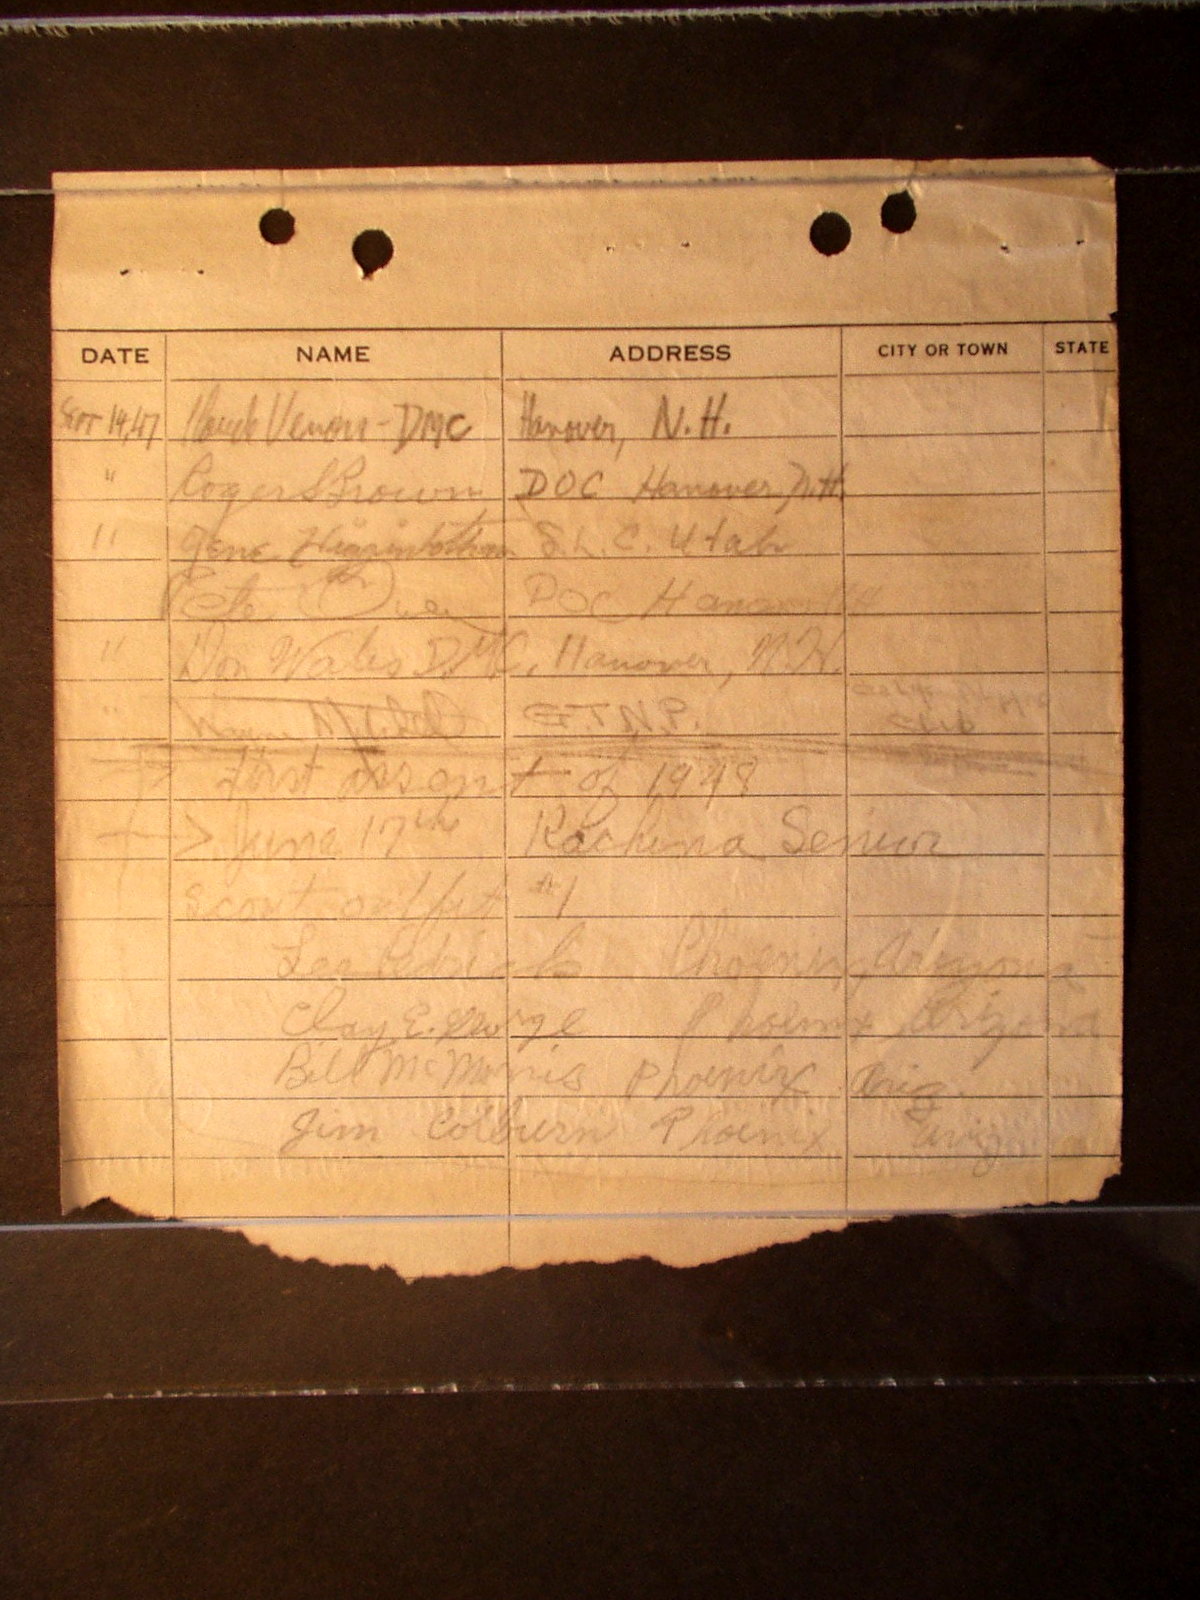 DATE NAME ADDRESS CITY OR TOWN STATE
Sept 14,47 Venon - DMC Hanover, N.H.
" Roger S Brown DOC Hanover N.H.
" Gene Higginbotham S.L.C. Utah
Pete Owen DOC Hanover NH
" Don Wales DMC, Hanover, N.H.
" Wayne Mitchell G.T.N.P.
→ First assent of 1948
→ June 17th Kachina Senior
Scout outfit #1
Phoenix Arizona
Clay E. George Phoenix Arizona
Bill McMorris Phoenix Ariz.
Jim Colburn Phoenix Ariz